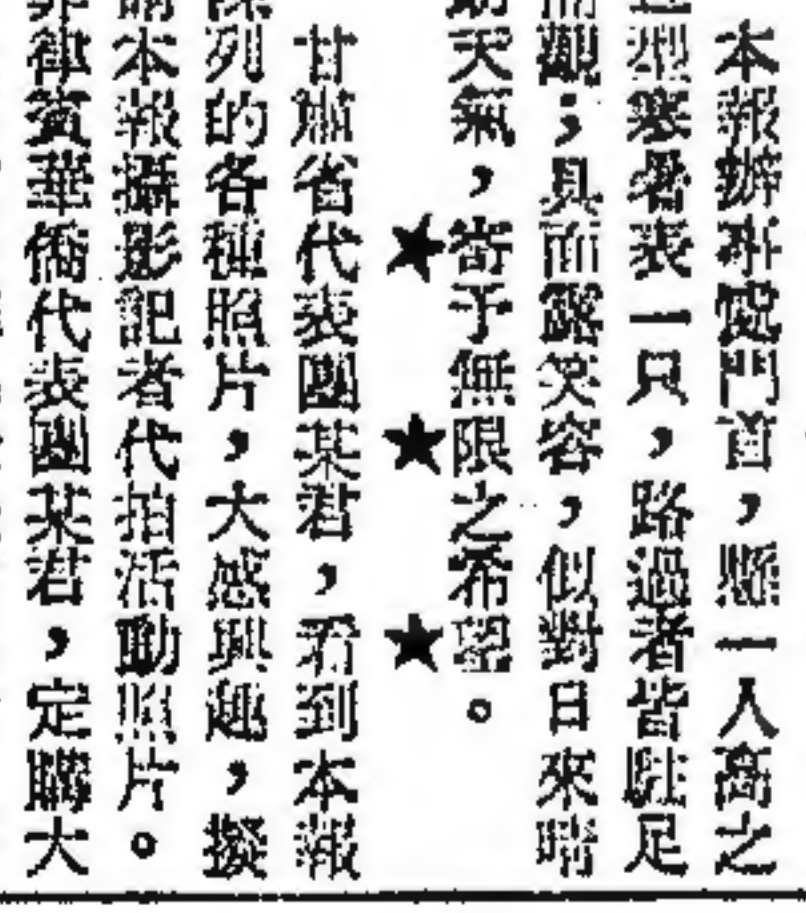 本報辦事處門首，懸一人高之
型寒暑表一只，路過者皆駐足
觀；具面露笑容，似對日來晴
天氣，寄予無限之希望。
★ ★ ★
甘肅省代表團某君，看到本報
列的各種照片，大感興趣，擬
本報攝影記者代拍活動照片。
律賓華僑代表團某君，定購大